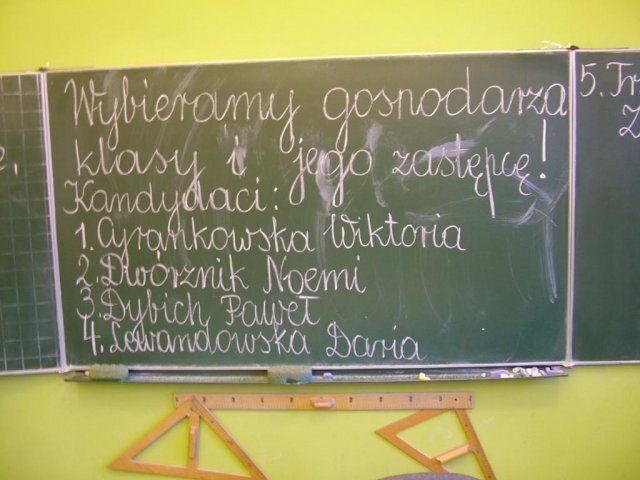 Wybieramy gospodarza
klasy i jego zastępcę!
Kandydaci:
1. Cyrankowska Wiktoria
2. Dwórznik Noemi
3. Dybich Paweł
4. Lewandowska Daria
5. Tr